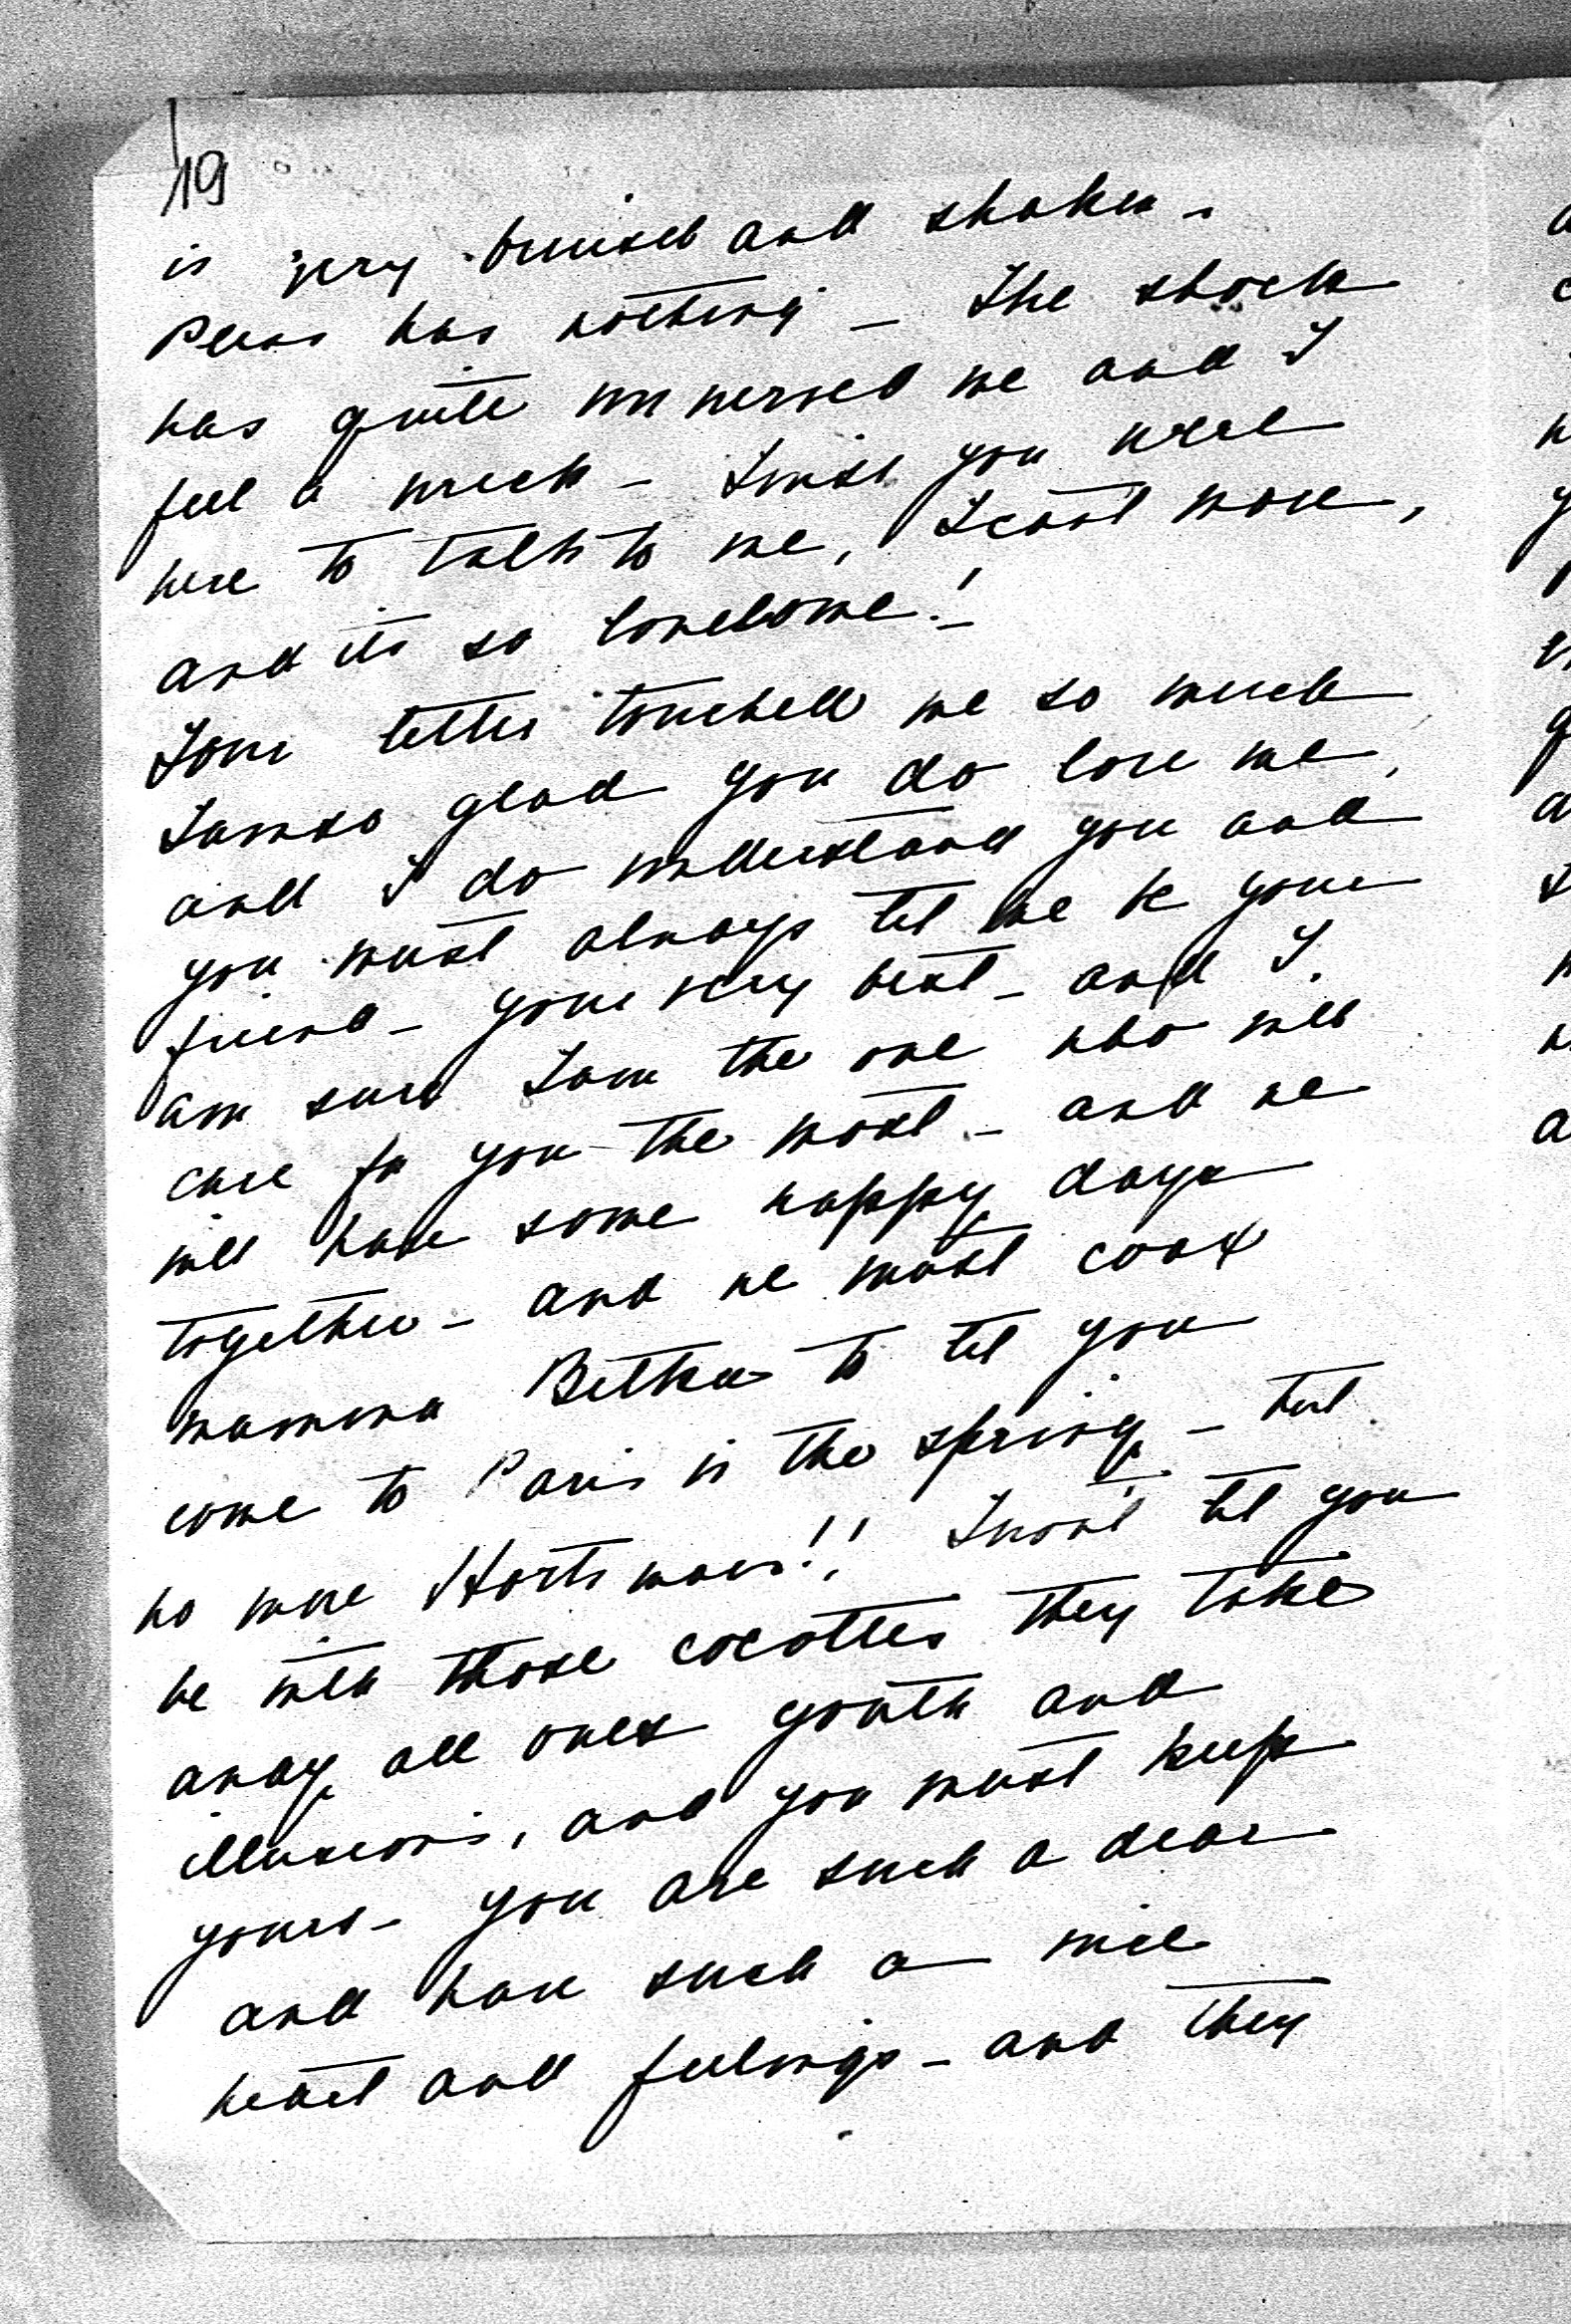 19
is very bruised and shaken –
has nothing – The shock
has quite unnerved me and I
feel a wreck – I wish you were
here to talk to me, I cant move,
and its so lonesome! –
Your letter touched me so much
I am so glad you do love me,
and I do understand you and
you must always let me be your
friend – your very best – and I
am sure I am the one who will
care for you the most – and we
will have some happy days
together – and we must coax
mamma to let you
come to Paris in the spring – but
no more I wont let you
be with those cocottes they take
away all ones youth and
illusions, and you must keep
yours – you are such a dear
and have such a nice
heart and feelings – and they